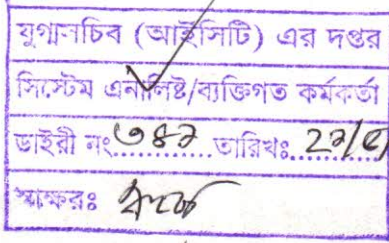 যুগ্মসচিব (আইসিটি) এর দপ্তর
সিস্টেম এনালিষ্ট/ব্যক্তিগত কর্মকর্তা
ডাইরী নং ৩৪৯ তারিখঃ
স্বাক্ষরঃ